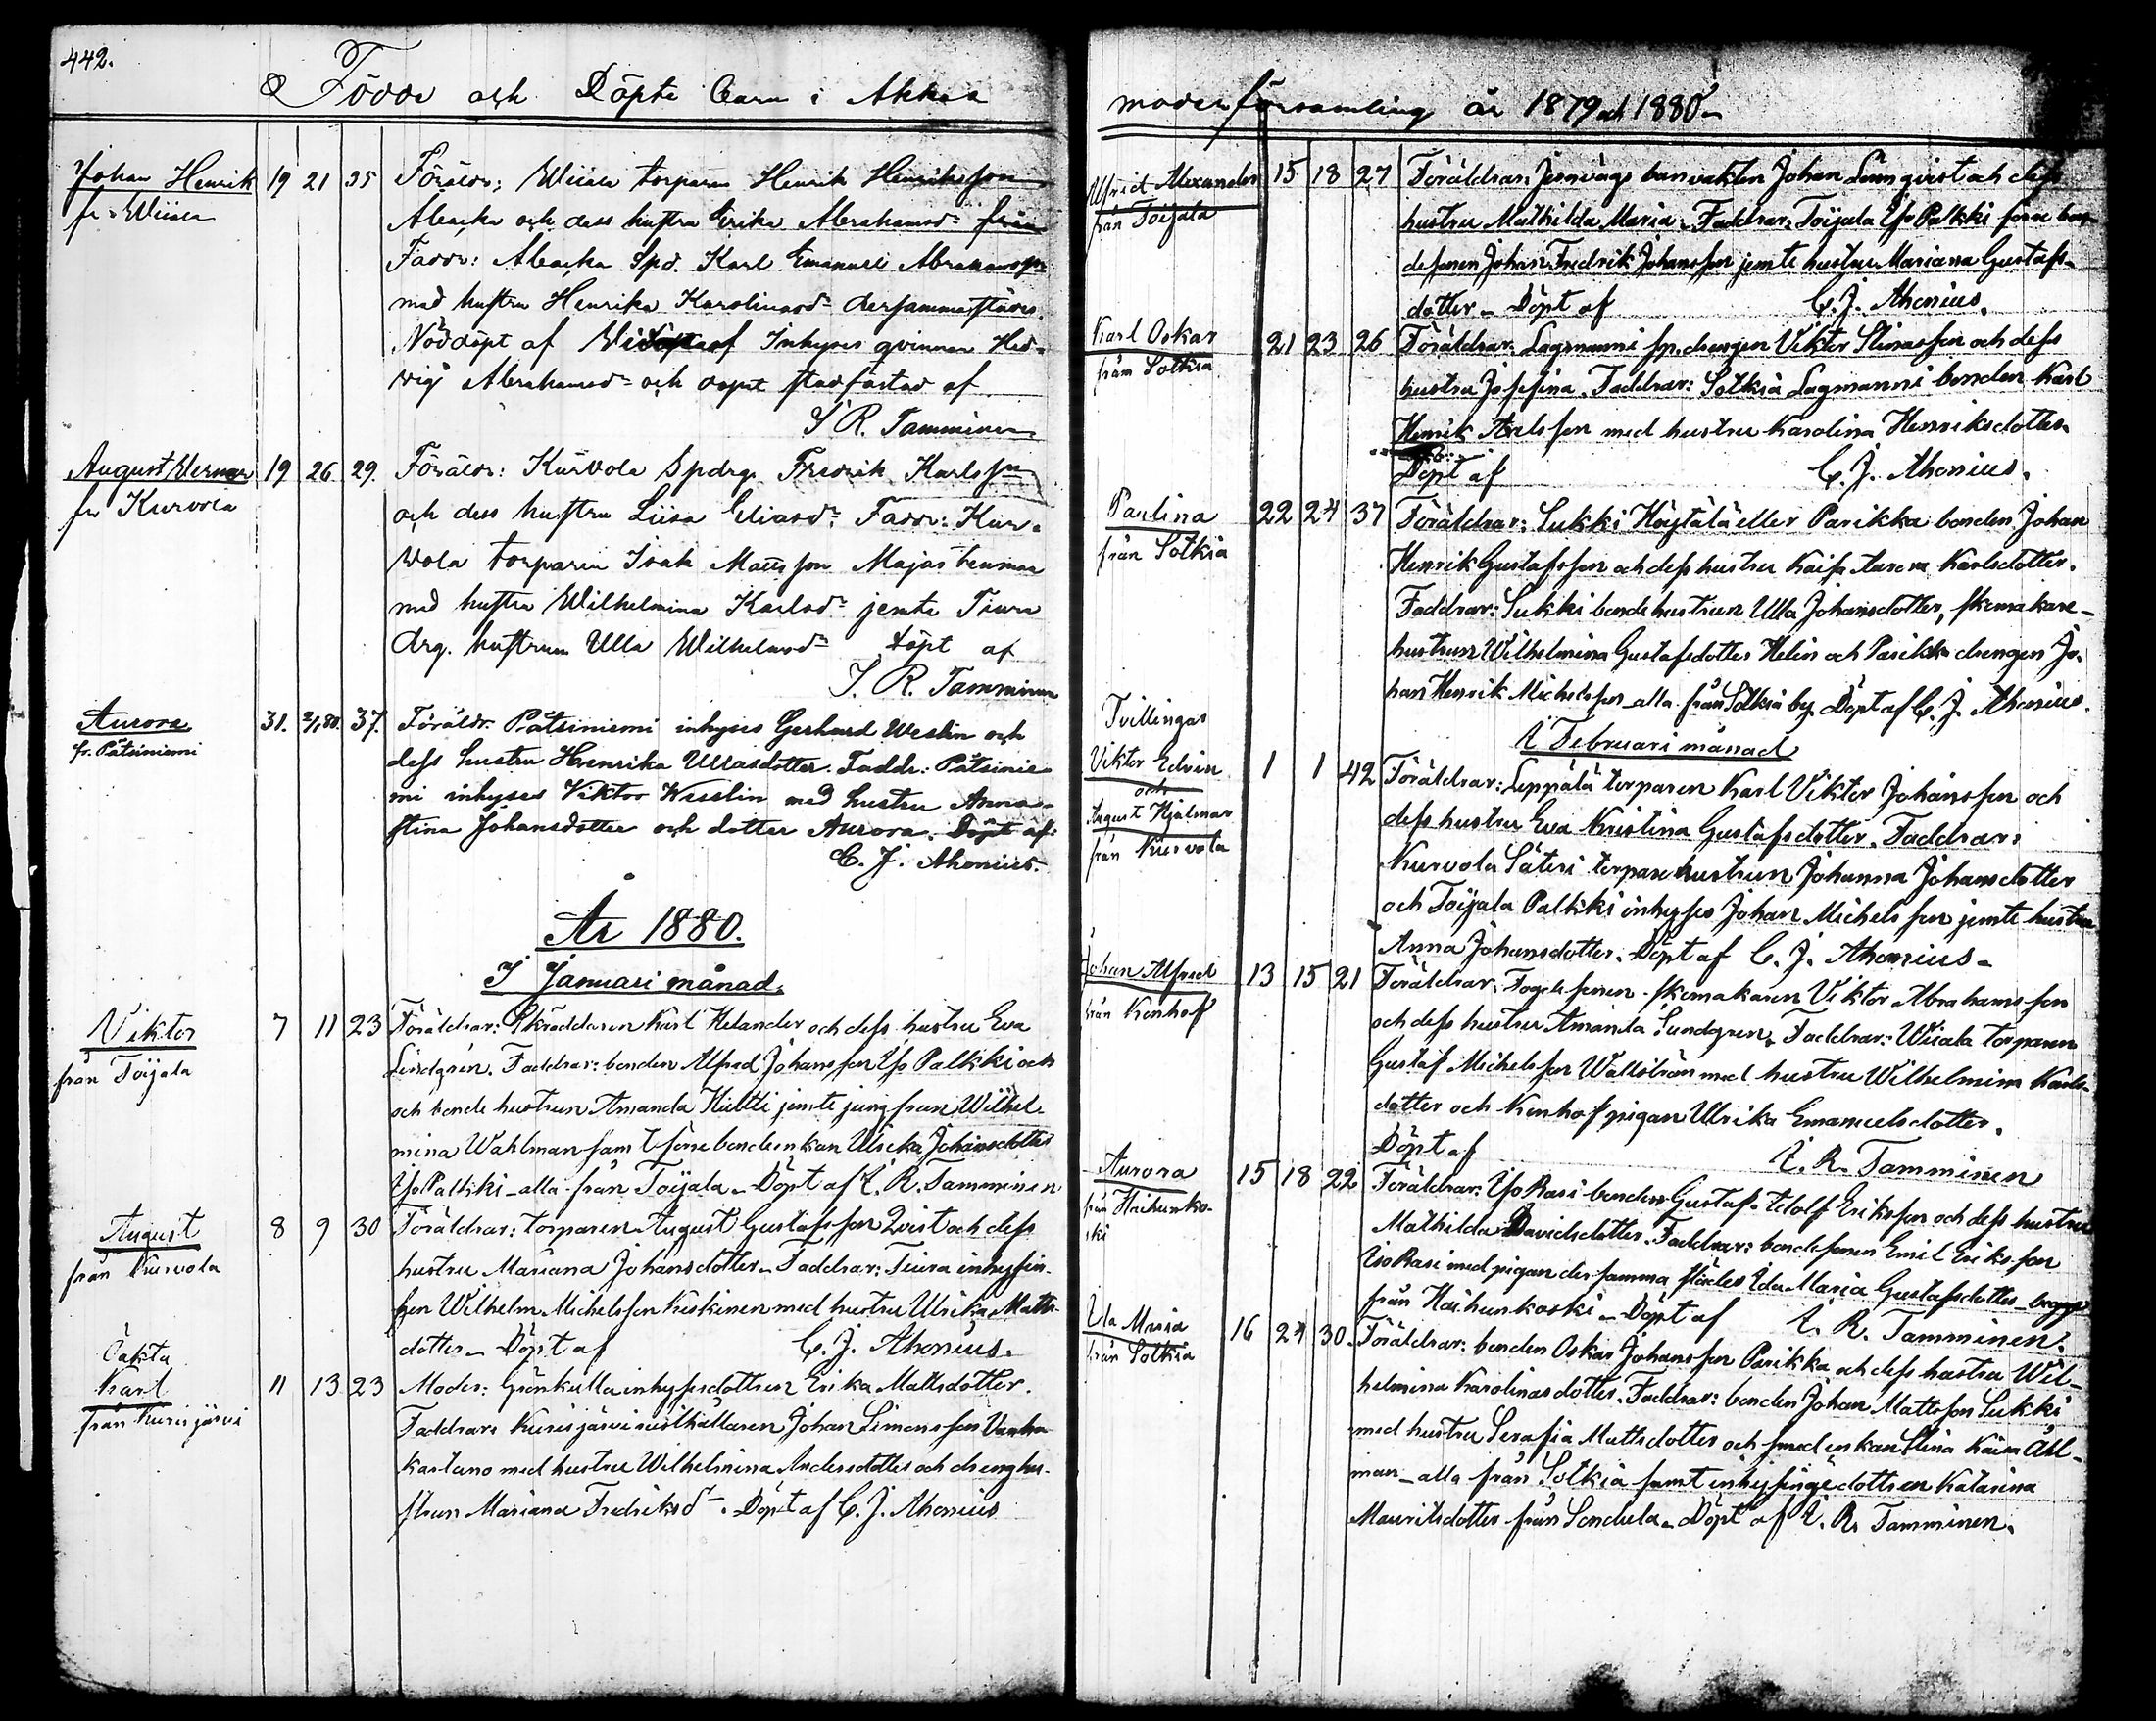 442.
Födde och Döpte barn i Akkas
Johan Henrik 19 21 35 Föräldr: Wiiala torparen Henrik Henriksson
fr. Wiiala Alcacka och dess hustru Erika Abrahamsd:
Faddr: Alcacka Spd. Karl Emanuel Abrahamsson
med hustru Henrika Karolinasd: dersammastädes.
Nöddöpt af Inhyses qvinnan Hed-
vig Abrahamsd: och döpt stadfästad af
I R. Tamminen
August Verner 19 26 29. Föräldr: Kurvola Spdrg. Fredrik Karlsson
fr. Kurvola och dess hustru Liisa Eliasd: Faddr: Kur-
vola torparen Isak Mattsson Majasteuman
med hustru Wilhelmina Karlsd: jemte Tiura
drg. hustrun Ulla Wilhelmsd: döpt af
I. R. Tamminen
Aurora 31. 2/1,80. 37. Föräldr. Pätsiniemi inhyses Gerhard Weslin och
fr. Pätsiniemi dess hustru Henrika Ullasdotter. Faddr: Pätsinie-
mi inhyses Viktor Wesslin med hustru Anna-
stina Johansdotter och dotter Aurora. Döpt af:
C. J. Ahonius.
År 1880.
I Januari månad.
Viktor 7 11 23 Föräldrar: Skräddaren Karl Helander och dess hustru Eva
från Toijala Lindgrén. Faddrar: bonden Alfred Johansson Yso Palkki och
och bonde hustrun Amanda Hiltti jemte jungfrun Wilhel-
mina Wahlman samt förre bondeenkan Ulrika Johansdotter
Yso Palkki – alla från Toijala. Döpt af I. R. Tamminen
August 8 9 30 Föräldrar: torparen August Gustafsson Qvist och dess
från Kurvola hustru Mariana Johansdotter. Faddrar: Tiura inhysin-
gen Wilhelm Michelsson Keskinen med hustru Ulrika Matts-
dotter. Döpt af C. J. Ahonius.
Oäkta
Karl 11 13 23 Moder: Grönkulla inhysesdottren Erika Mattsdotter.
från Kurisjärvi Faddrar: Kurisjärvi rusthållaren Johan Simonsson Vanha-
kartano med hustru Wilhelmina Andersdotter och drenghu-
strun Mariana Fredriksd. – Döpt af C. J. Ahonius
moderförsamling år 1879 och 1880
Alfrid Alexander 15 18 27 Föräldrar: Jernvägs banvakten Johan Lönnqvist och dess
från Toijala hustru Mathilda Maria. Faddrar: Toijala Yso Palkki förre bon-
desonen Johan Fredrik Johansson jemte hustru Mariana Gustafs-
dotter. Döpt af C. J. Ahonius.
Karl Oskar 21 23 26 Föräldrar: Lagmanni sp. drengen Viktor Stinasson och dess
från Sotkia hustru Josefina. Faddrar: Sotkia Lagmanni bonden Karl
Henrik Axelsson med hustru Karolina Henriksdotter.
Döpt af C. J. Ahonius.
Paulina 22 24 37 Föräldrar: Sukki Höytälä eller Parikka bonden Johan
från Sotkia Henrik Gustafsson och dess hustru Kaisa Karlsdotter.
Faddrar: Sukki bondehustrun Ulla Johansdotter, skomakare-
hustrun Wilhelmina Gustafsdotter Helin och Parikka drengen Jo-
han Henrik Michelsson – alla från Sotkia by. Döpt af C. J. Ahonius.
I Februari månad
Tvillingar
Viktor Edvin 1 1 42 Föräldrar: Leppälä torparen Karl Viktor Johansson och
och dess hustru Eva Kristina Gustafsdotter. Faddrar:
August Hjalmar Kurvola Säteri torparehustrun Johanna Johansdotter
från Kurvola och Toijala Palkki inhyses Johan Michelsson jemte hustru
Anna Johansdotter. Döpt af C. J. Ahonius.
Johan Alfred 13 15 21 Föräldrar: skomakaren Viktor Abrahamsson
från Konhof och dess hustru Amanda Sundgren. Faddrar: Wiiala torparen
Gustaf Michelsson Wallström med hustru Wilhelmina Karls-
dotter och Konhof pigan Ulrika Emanuelsdotter.
Döpt af I. R. Tamminen
Aurora 15 18 22 Föräldrar: Yso Rasi bonden Gustaf Adolf Eriksson och dess hustru
från Haihunko- Mathilda Davidsdotter. Faddrar: bondesonen Emil Eriksson
ski Yso Rasi med pigan dersammastädes Ida Maria Gustafsdotter – begge
från Haihunkoski. Döpt af I. R. Tamminen.
Ida Maria 16 24 30 Föräldrar: bonden Oskar Johansson Parikka och dess hustru Wil-
från Sotkia helmina Karolinasdotter. Faddrar: bonden Johan Mattsson Sukki
med hustru Serafia Mattsdotter och smedenkan Stina Kaisa Åhl-
man – alla från Sotkia samt inhysingedottren Katarina
Mauritsdotter från Sondula. Döpt af I. R. Tamminen.